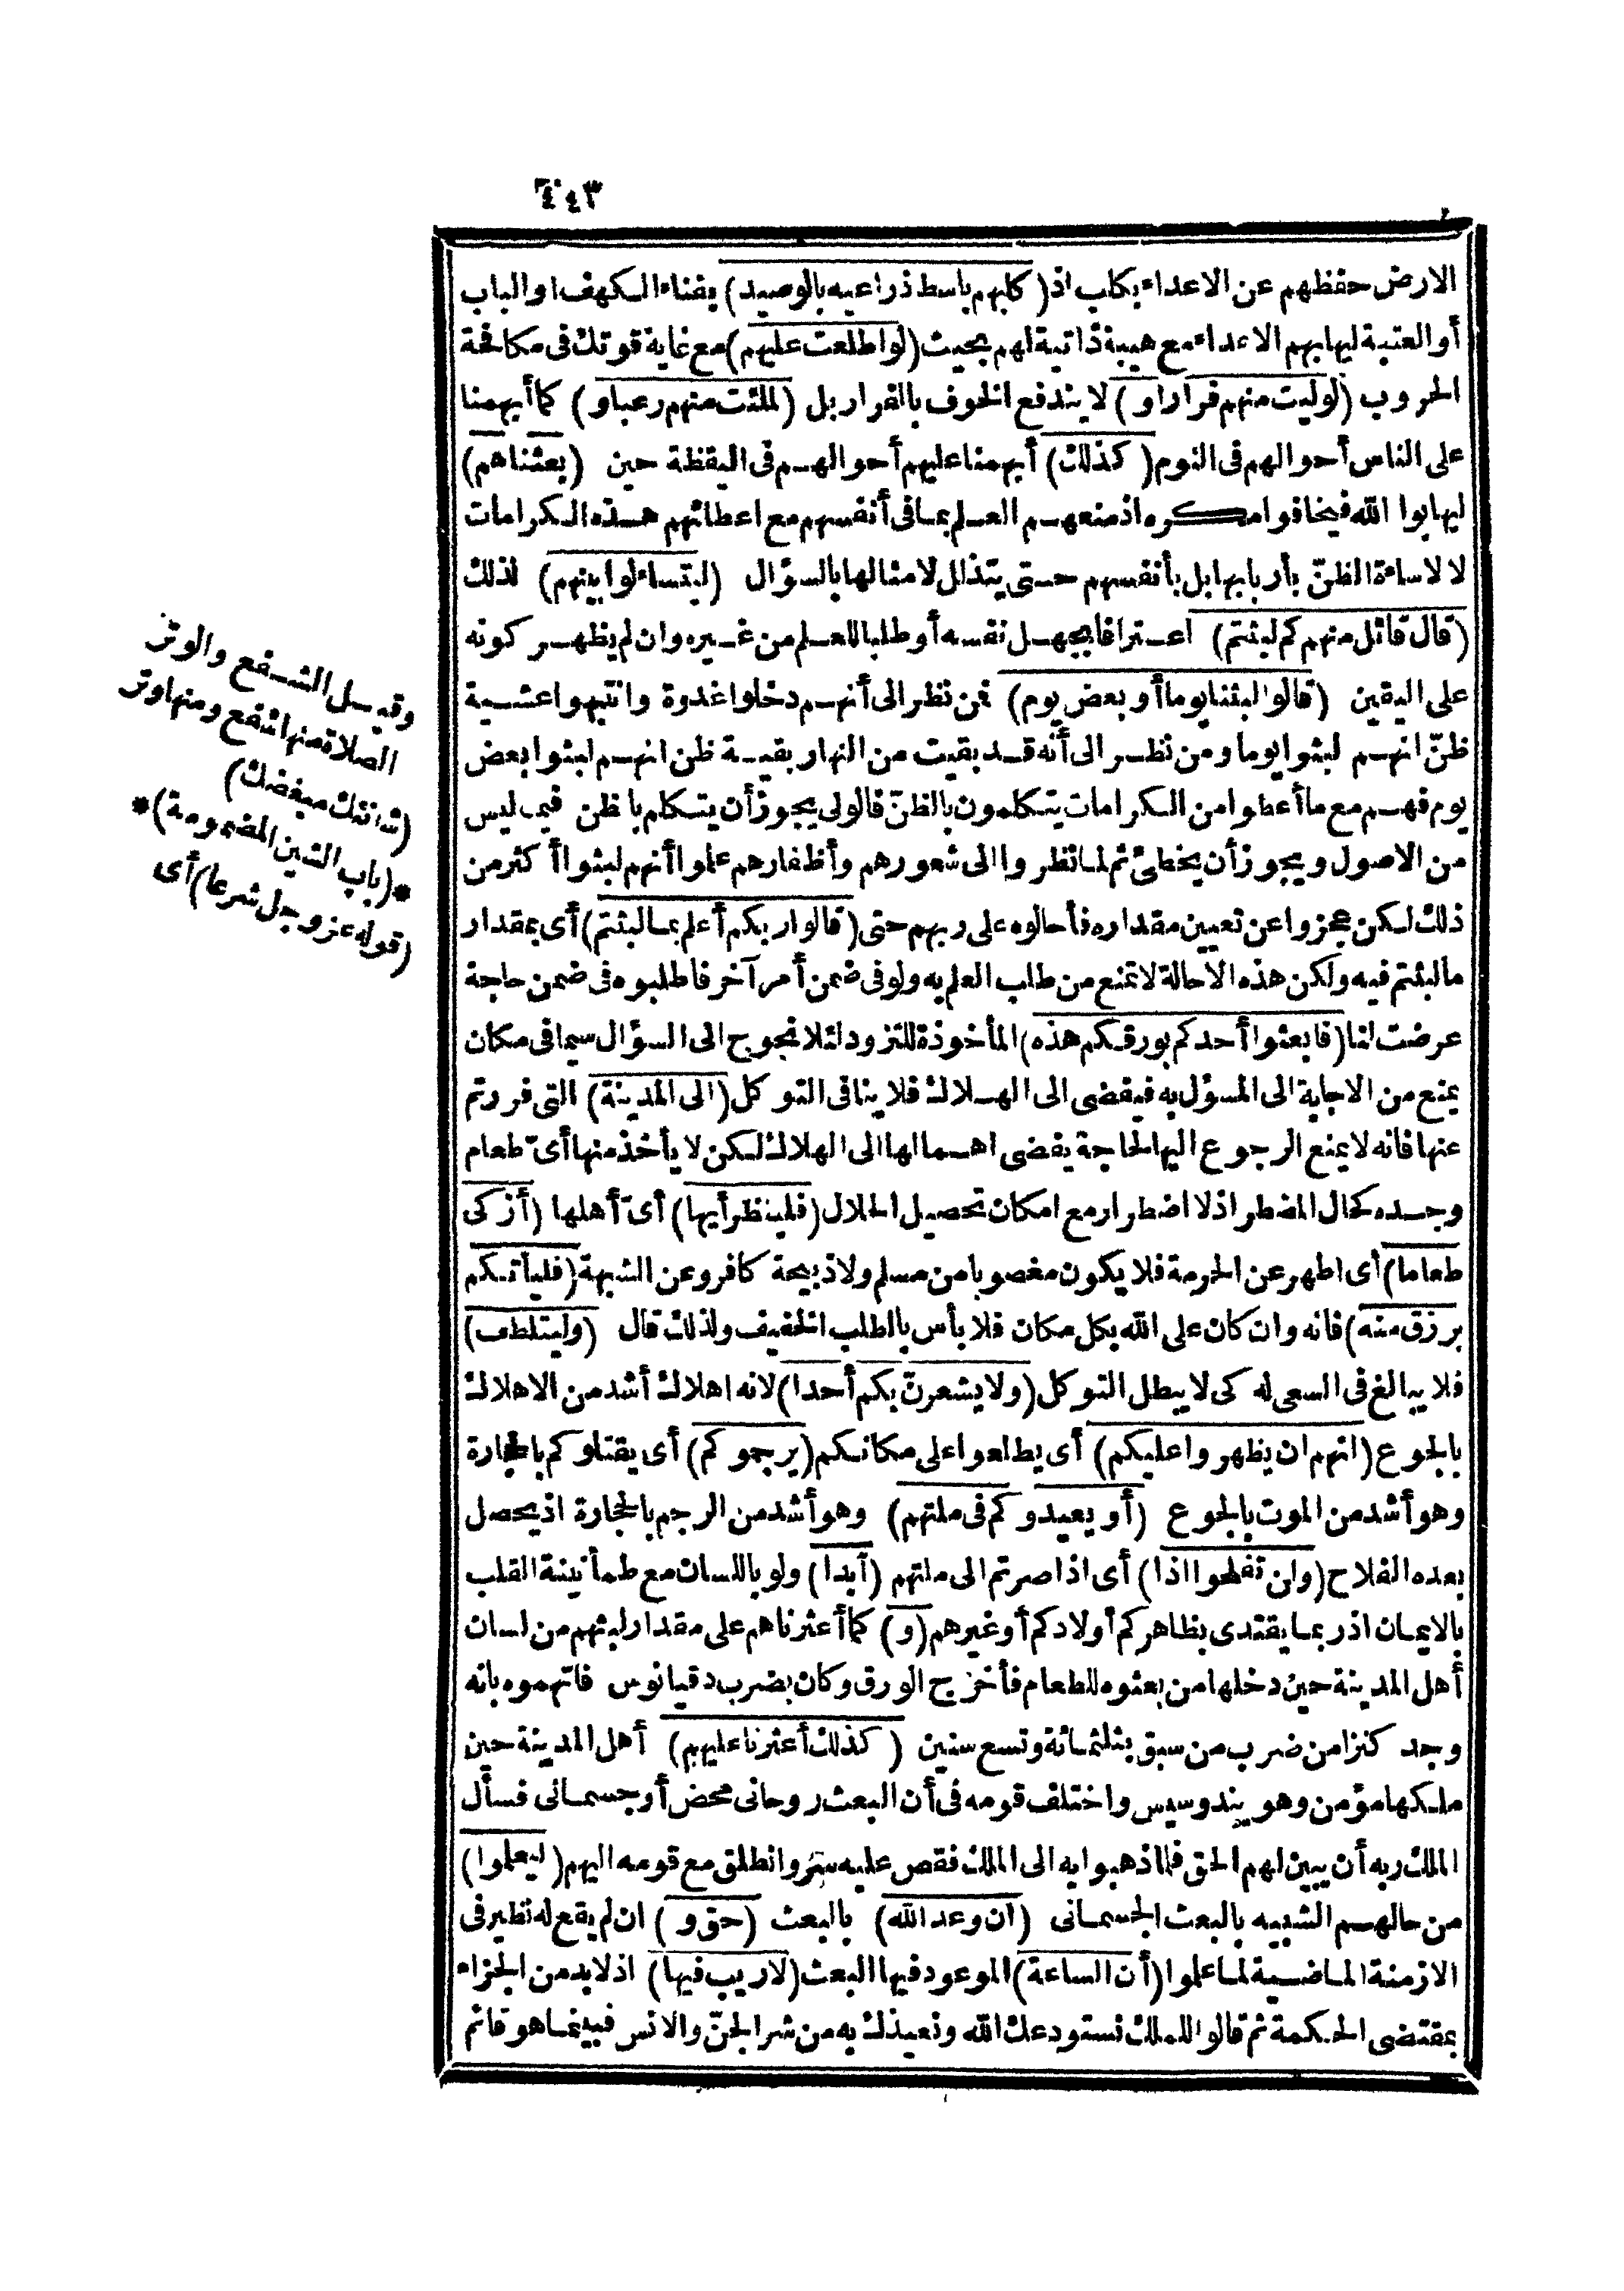 ٤٤٣
الارض حفظهم عن الاعداء بكلب اذ (كلبهم باسط ذراعيه بالوصيد) بفناء الكهف او الباب
أو العتبة ليهابهم الاعداء مع هيبة ذاتية لهم بحيث (لو اطلعت عليهم) مع غاية قوتك فى مكافحة
الحروب (لوليت منهم فرارا و) لا يندفع الخوف بالفرار بل (لملئت منهم رعبا و) كما أبهمنا
على الناس أحوالهم فى النوم (كذلك) أبهمنا عليهم أحوالهم فى اليقظة حين (بعثناهم)
ليهابوا الله فيخافوا مكره اذ منعهم العلم بما فى أنفسهم مع اعطائهم هذه الكرامات
لا لاساءة الظنّ بأربابها بل بأنفسهم حتى يتذال لامثالها بالسؤال (ليتساءلوا بينهم) لذلك
(قال قائل منهم كم لبثتم) اعترافا بجهل نفسه أو طلبا للعلم من غيره وان لم يظهر كونه
على اليقين (قالوا لبثنا يوما أو بعض يوم) فمن نظر الى أنهم دخلوا غدوة وانتبهوا عشية
ظنّ انهم لبثوا يوما ومن نظر الى أنه قد بقيت من النهار بقية ظن انهم لبثوا بعض
يوم فهم مع ما أعطوا من الكرامات يتكلمون بالظنّ فالولى يجوز أن يتكلم با ظن فيما ليس
من الاصول ويجوز أن يخطئ ثم لما نظروا الى شعورهم وأظفارهم علموا أنهم لبثوا أكثر من
ذلك لكن عجزوا عن تعيين مقداره فأحالوه على ربهم حتى (قالوا ربكم أعلم بما لبثتم) أى بمقدار
ما لبثتم فيه ولكن هذه الاحالة لا تمنع من طلب العلم به ولو فى ضمن أمر آخر فاطلبوه فى ضمن حاجة
عرضت لنا (فابعثوا أحدكم بورقكم هذه) المأخوذة للتزود لئلا نحوج الى السؤال سيما فى مكان
يمنع من الاجابة الى المسؤل به فيفضى الى الهلاك فلا ينافى التوكل (الى المدينة) التى فررتم
عنها فانه لا يمنع الرجوع اليها لحاجة يفضى اهمالها الى الهلاك لكن لا يأخذ منها أىّ طعام
وجده كحال المضطر اذ لا اضطرار مع امكان تحصيل الحلال (فلينظر أيها) أىّ أهلها (أزكى
طعاما) أى اطهر عن الحرمة فلا يكون مغصوبا من مسلم ولا ذبيحة كافر وعن الشبهة (فليأتكم
برزق منه) فانه وان كان على الله بكل مكان فلا بأس بالطلب الخفيف ولذلك قال (وليتلطف)
فلا يبالغ فى السعى له كى لا يبطل التوكل (ولا يشعرنّ بكم أحدا) لانه اهلاك أشد من الاهلاك
بالجوع (انهم ان يظهروا عليكم) أى يطلعوا على مكانكم (يرجموكم) أى يقتلوكم بالحجارة
وهو أشد من الموت بالجوع (أو يعيدوكم فى ملتهم) وهو أشد من الرجم بالحجارة اذ يحصل
بعده الفلاح (وان تفلحوا اذا) أى اذا صرتم الى ملتهم (أبدا) ولو باللسان مع طمأنينة القلب
بالايمان اذ ربما يقتدى بظاهركم أولادكم أو غيرهم (و) كما أعثرناهم على مقدار لبثهم من لسان
أهل المدينة حين دخلها من بعثوه للطعام فأخرج الورق وكان بضرب دقيانوس فاتهموه بانه
وجد كنزا من ضرب من سبق بثلثمائة وتسع سنين (كذلك أعثرنا عليهم) أهل المدينة حين
ملكها مؤمن وهو بيندوسيس واختلف قومه فى أن البعث روحانى محض أو جسمانى فسأل
الملك ربه أن يبين لهم الحق فلما ذهبوا به الى الملك فقص عليه ستر وانطلق مع قومه اليهم (ليعلموا)
من حالهم الشبيه بالبعث الجسمانى (ان وعد الله) بالبعث (حق و) ان لم يقع له نظير فى
الازمنة الماضية لما علموا (أن الساعة) الموعود فيها البعث (لا ريب فيها) اذ لا بد من الجزاء
بمقتضى الحكمة ثم قالوا للملك نستودعك الله ونعيذك به من شر الجنّ والانس فبينما هو قائم
وقيل الشفع والوتر
الصلاة منها شفع ومنها وتر
(شانئك مبغضك)
*(باب الشين المضمومة)*
(قوله عز وجل شرعا) أى